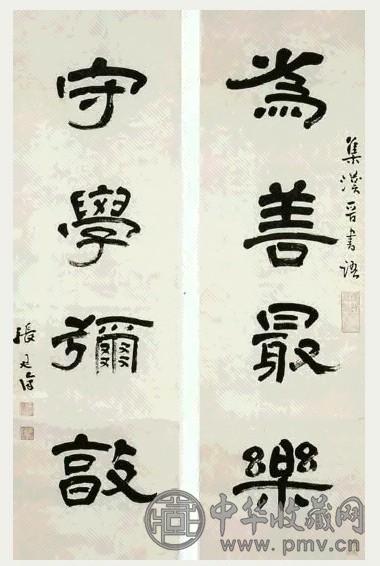 為善最樂
集漢晉書語
守學彌敦
張廷濟
中华收藏网
www.pmv.cn